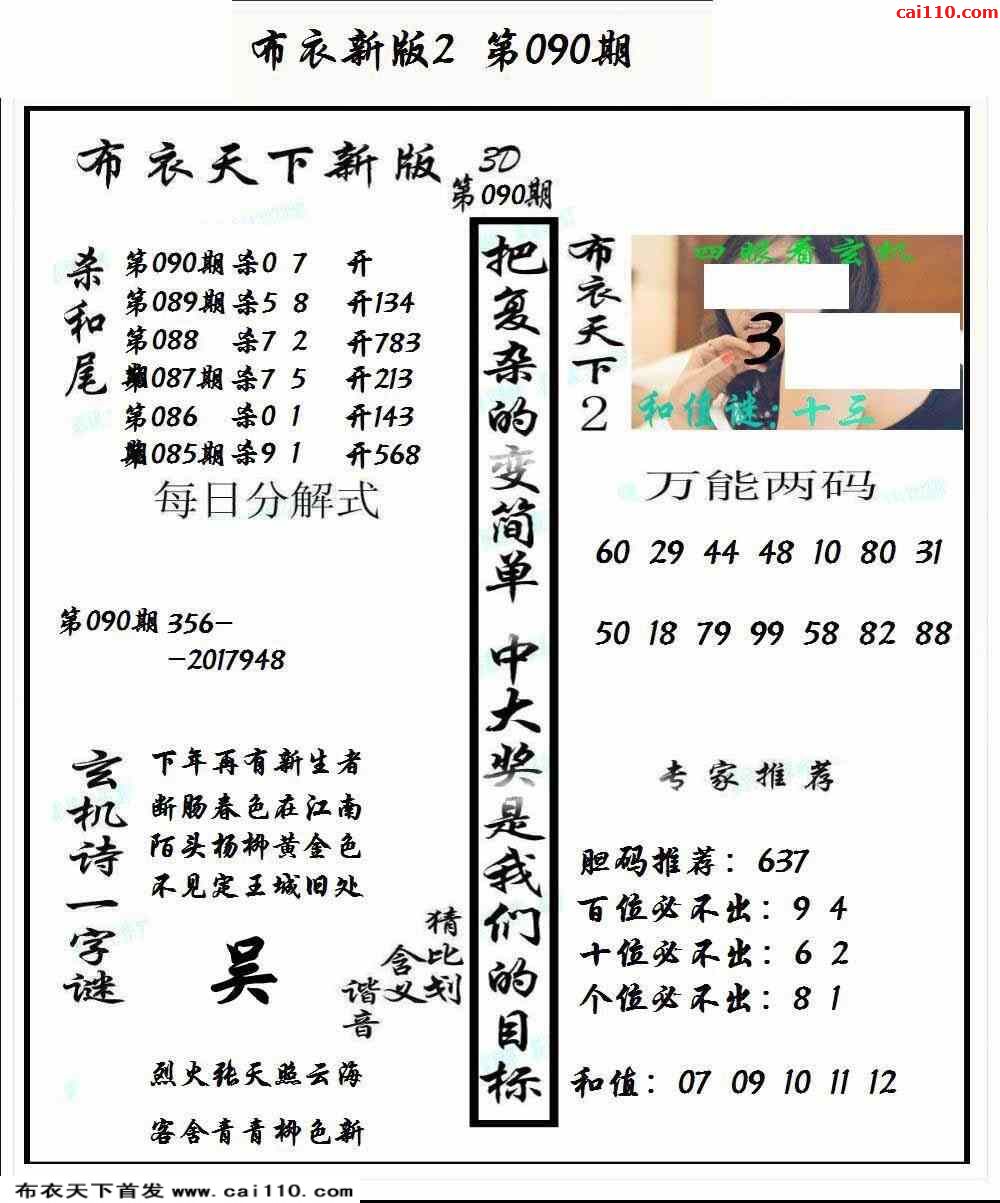 cai110.com
布衣新版2 第090期
布衣天下新版
3D
第090期
杀和尾
第090期 杀0 7 开
第089期 杀5 8 开134
第088 杀7 2 开783
087期 杀7 5 开213
第086 杀0 1 开143
085期 杀9 1 开568
每日分解式
第090期 356-
-2017948
玄机诗一字谜
下年再有新生者
断肠春色在江南
陌头杨柳黄金色
不见定王城旧处
吴
猜比划
含义
谐音
烈火张天照云海
客舍青青柳色新
把复杂的变简单 中大奖是我们的目标
布衣天下2
四眼看玄机
3
和值谜:十三
万能两码
60 29 44 48 10 80 31
50 18 79 99 58 82 88
专家推荐
胆码推荐：637
百位必不出：9 4
十位必不出：6 2
个位必不出：8 1
和值：07 09 10 11 12
布衣天下首发 www.cai110.com